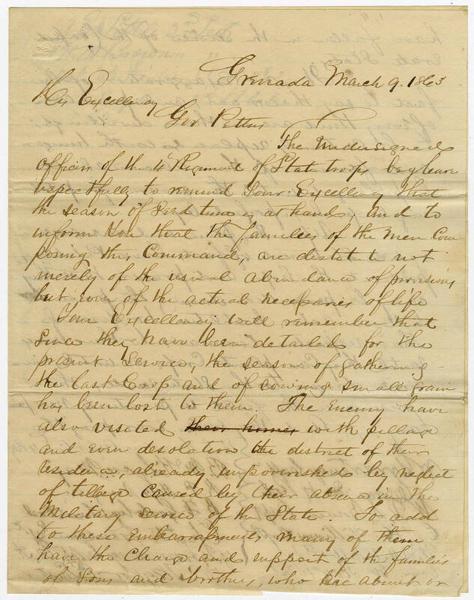 Grenada March 9. 1863
His Excellency
Gov Pettus
The Undersigned
officers of the 4" Regiment of State troops beg leave
respectfully to remind Your Excellency that
the season of Seed time is at hand, and to
inform him that the families of the Men Com
posing this Command, are destitute not
merely of the usual abundance of provisions
but even of the actual necessaries of life
Your Excellency will remember that
Since they have been detailed for the
present Service, the season of gathering
the last Crop and of sowing small grain
has been lost to them. The Enemy have
also visited their homes with pillage
and even desolation the district of their
residence, already impoverished by neglect
of tillage caused by their absence in the
Military service of the State. To add
to these embarrassments many of them
have the charge and support of the families
of Sons and brothers, who are absent or